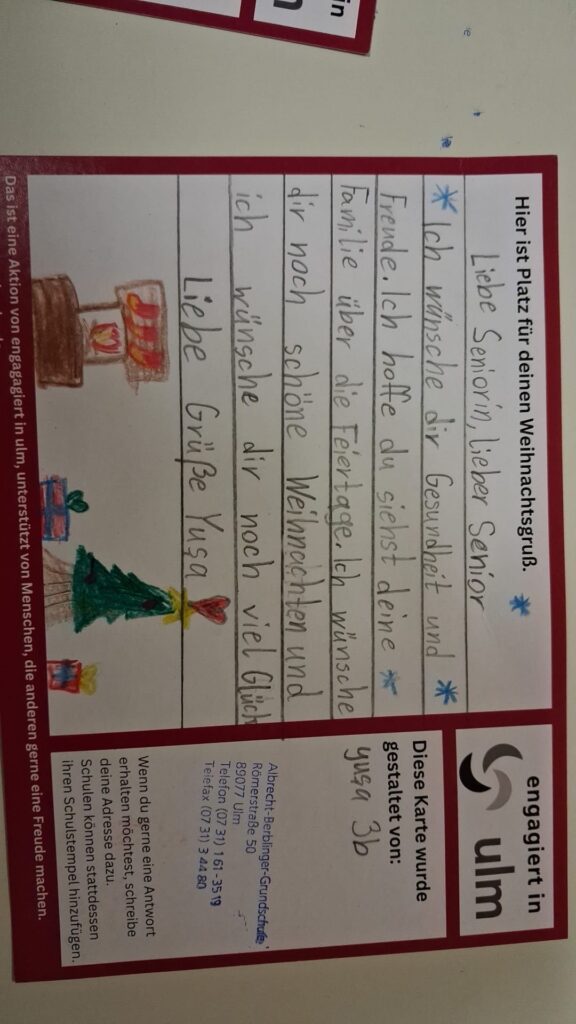 in
Hier ist Platz für deinen Weihnachtsgruß.
Liebe Seniorin, lieber Senior
Ich wünsche dir Gesundheit und
Freude. Ich hoffe du siehst deine
Familie über die Feiertage. Ich wünsche
dir noch schöne Weihnachten und
ich wünsche dir noch viel Glück
Liebe Grüße Yuşa
engagiert in
ulm
Diese Karte wurde
gestaltet von:
yuşa 3b
Albrecht-Berblinger-Grundschule
Römerstraße 50
89077 Ulm
Telefon (07 31) 1 61-3519
Telefax (07 31) 3 44 80
Wenn du gerne eine Antwort
erhalten möchtest, schreibe
deine Adresse dazu.
Schulen können stattdessen
ihren Schulstempel hinzufügen.
Das ist eine Aktion von engagagiert in ulm, unterstützt von Menschen, die anderen gerne eine Freude machen.